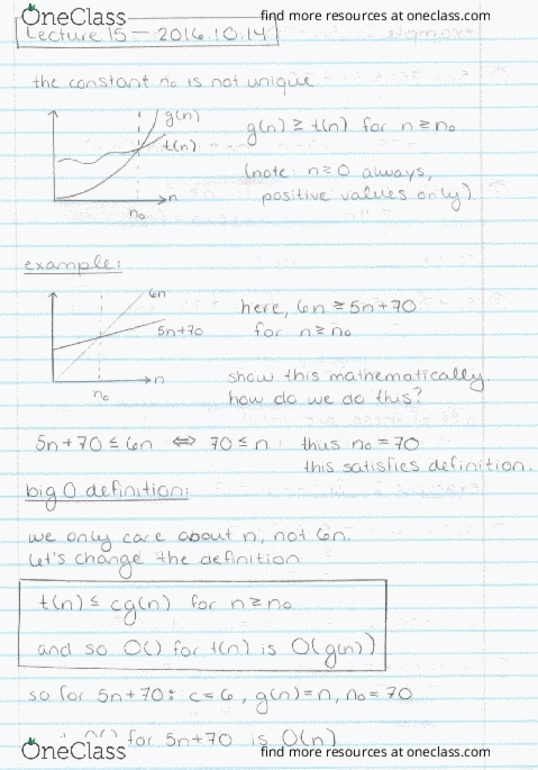 OneClass
find more resources at oneclass.com
Lecture 15 — 2016.10.14
the constant n₀ is not unique
g(n)
t(n)
n
n₀
g(n) ≥ t(n) for n ≥ n₀
(note: n ≥ 0 always,
positive values only)
example:
6n
5n+70
n
n₀
here, 6n ≥ 5n+70
for n ≥ n₀
show this mathematically.
how do we do this?
5n+70 ≤ 6n ⇔ 70 ≤ n thus n₀ = 70
this satisfies definition.
big O definition:
we only care about n, not 6n.
let's change the definition
t(n) ≤ cg(n) for n ≥ n₀
and so O() for t(n) is O(g(n))
so for 5n+70: c = 6, g(n) = n, n₀ = 70
for 5n+70 is O(n)
OneClass
find more resources at oneclass.com